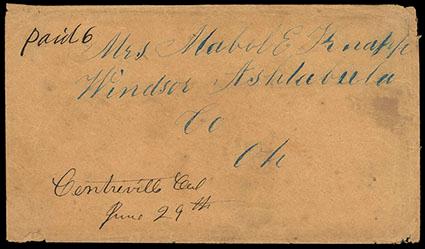 paid 6
Mrs Mabol E Knapp
Windsor Ashtabula
Co
Oh
Centreville Cal
June 29th